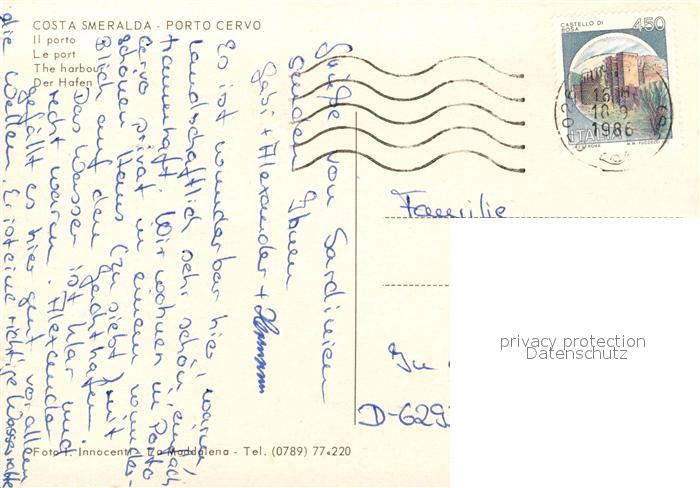 COSTA SMERALDA - PORTO CERVO
Il porto
Le port
The harbour
Der Hafen
CASTELLO DI
ROSA
450
ITALIA
10 9
1986
Grüße von Sardinien
senden Ihnen
Gabi + Alexander + Hermann
Es ist wunderbar hier, warm,
landschaftlich sehr schön, einfach
traumhaft. Wir wohnen in Porto
Cervo privat in einem wunder-
schönen Haus (zu siebt) mit
Blick auf den Yachthafen.
Das Wasser ist klar und
recht warm. Alexander
gefällt es hier gut, vor allem
die Wellen. Er ist eine richtige Wasserratte
Familie
In
D-629
privacy protection
Datenschutz
Foto I. Innocenti - La Maddalena - Tel. (0789) 77.220